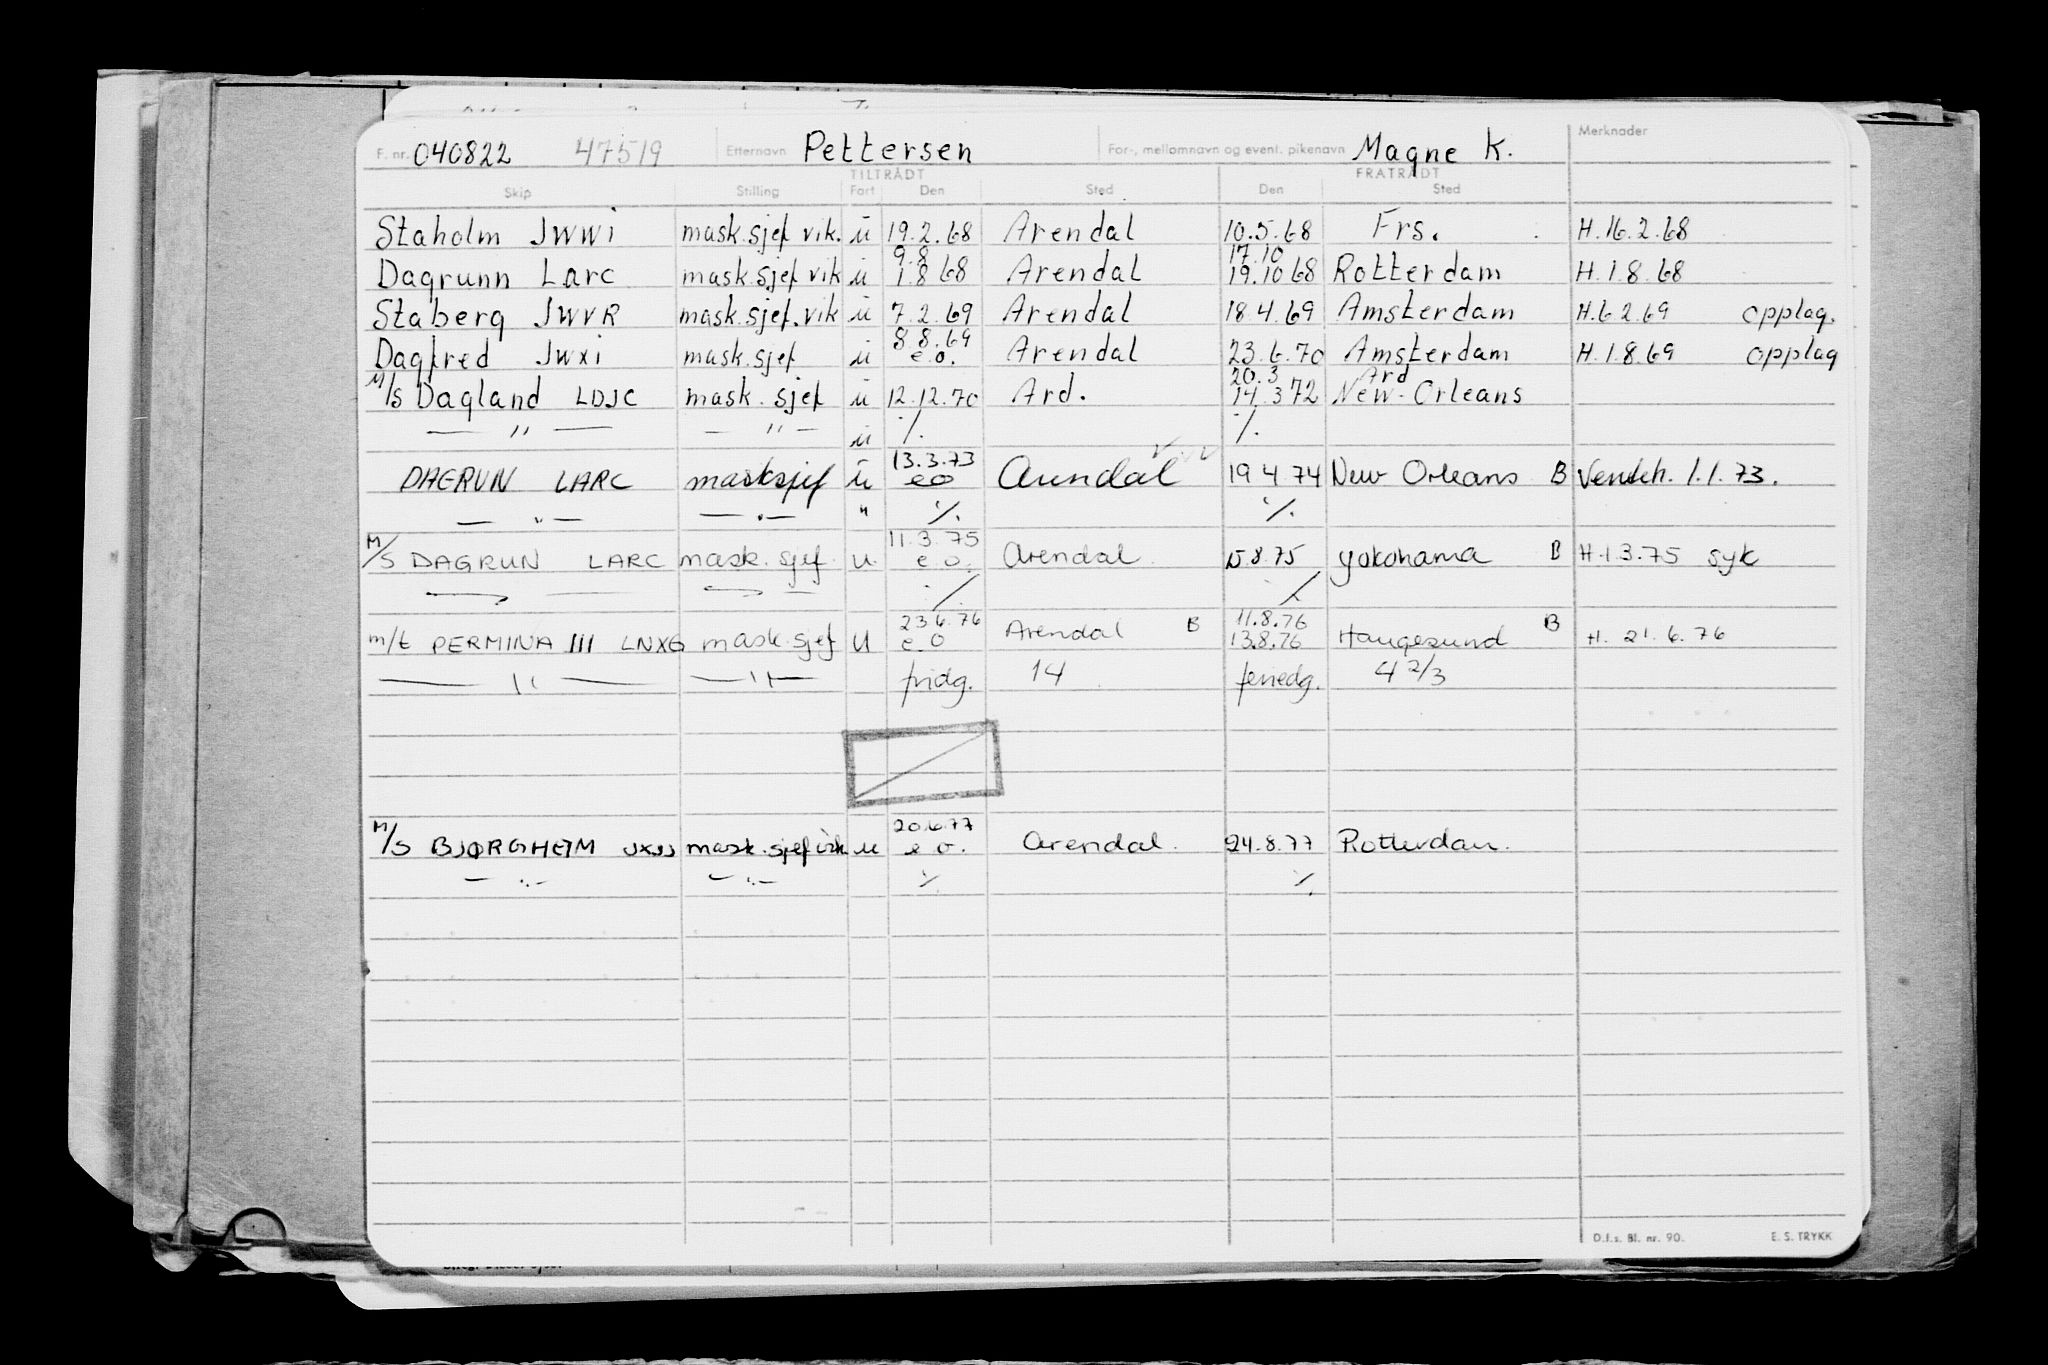 F. nr. 040822 47519 Etternavn Pettersen For-, mellomnavn og event. pikenavn Magne K. Merknader
TILTRÅDT FRATRÅDT
Skip Stilling Fart Den Sted Den Sted
Staholm JWWI mask.sjef vik. u 19.2.68 Arendal 10.5.68 Frs. H.16.2.68
9.8 17.10
Dagrunn Larc mask.sjef vik u 1.8 68 Arendal 19.10 68 Rotterdam H.1.8.68
Staberg JWVR mask.sjef.vik u 7.2.69 Arendal 18.4.69 Amsterdam H.6 2.69 opplag.
8.8.69
Dagfred JWXI mask.sjef u e.o. Arendal 23.6.70 Amsterdam H.1.8.69 opplag
20.3 Ard
M/S Dagland LDJC mask.sjef u 12.12.70 Ard. 14.3 72 New-Orleans
— " — — " — u ./. ./.
13.3.73
DAGRUN LARC masksjef u eo Arendal 19 4 74 New Orleans B Venteh. 1.1.73.
— " — — " — " ./. ./.
11.3.75
M/S DAGRUN LARC mask.sjef. u. e o. Arendal 15.8.75 Yokohama B H.1.3.75 syk
./. ./.
23.6.76 11.8.76
m/t PERMINA III LNXG mask.sjef U e.o Arendal B 13.8.76 Haugesund B H. 21.6.76
— " — — " — fridg. 14 feriedg. 4 2/3
20.6.77
M/S BJØRGHEIM JXJJ mask.sjef vik u e o. Arendal. 24.8.77 Rotterdam.
— " — — " — ./. ./.
D.f.s. Bl. nr. 90. E. S. TRYKK